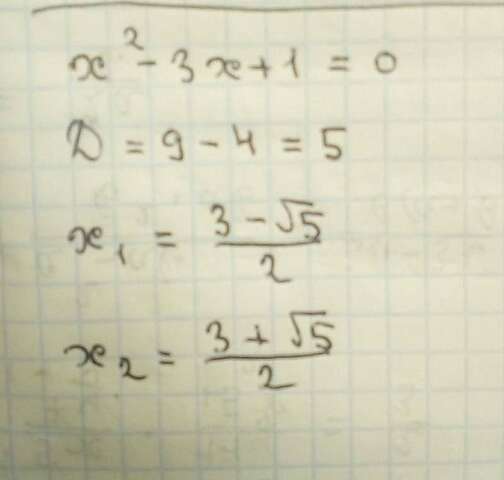 x² - 3x + 1 = 0
D = 9 - 4 = 5
x₁ = (3 - √5)/2
x₂ = (3 + √5)/2